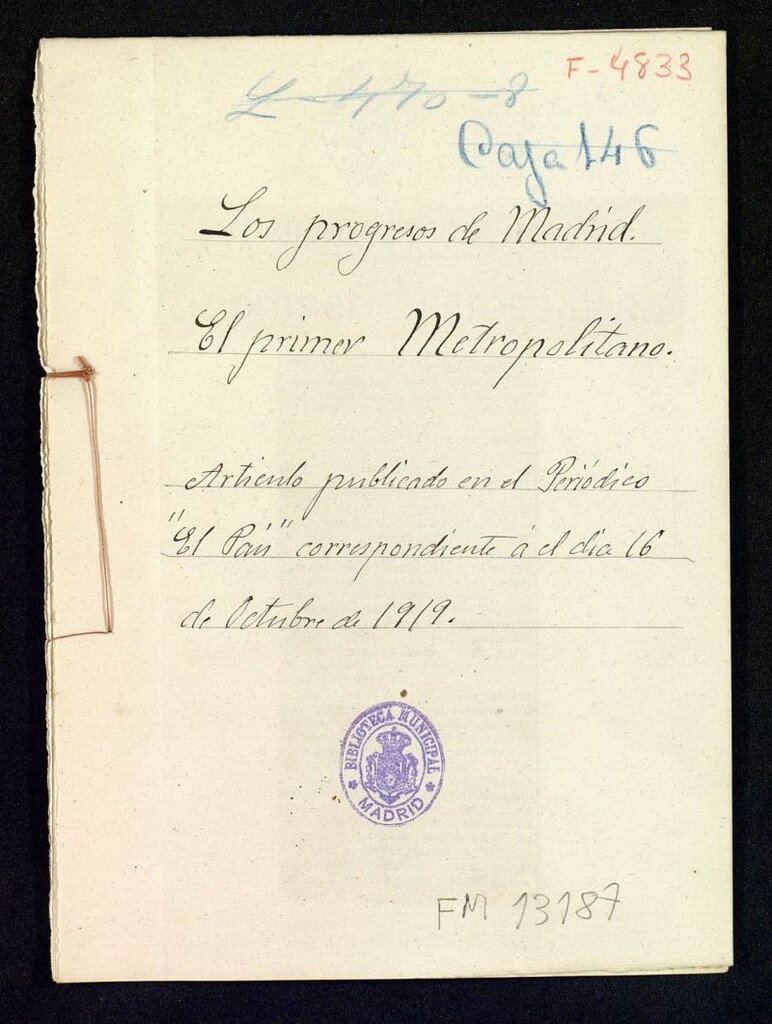 F-4833
L-470-8
Caja 146
Los progresos de Madrid.
El primer Metropolitano.
Articulo publicado en el Periódico
"El País" correspondiente á el día 16
de Octubre de 1919.
BIBLIOTECA MUNICIPAL
MADRID
FM 13187